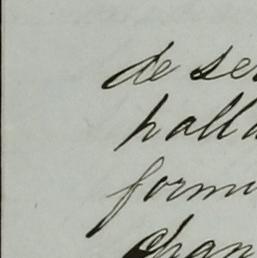 de ser
halla
formi
chan